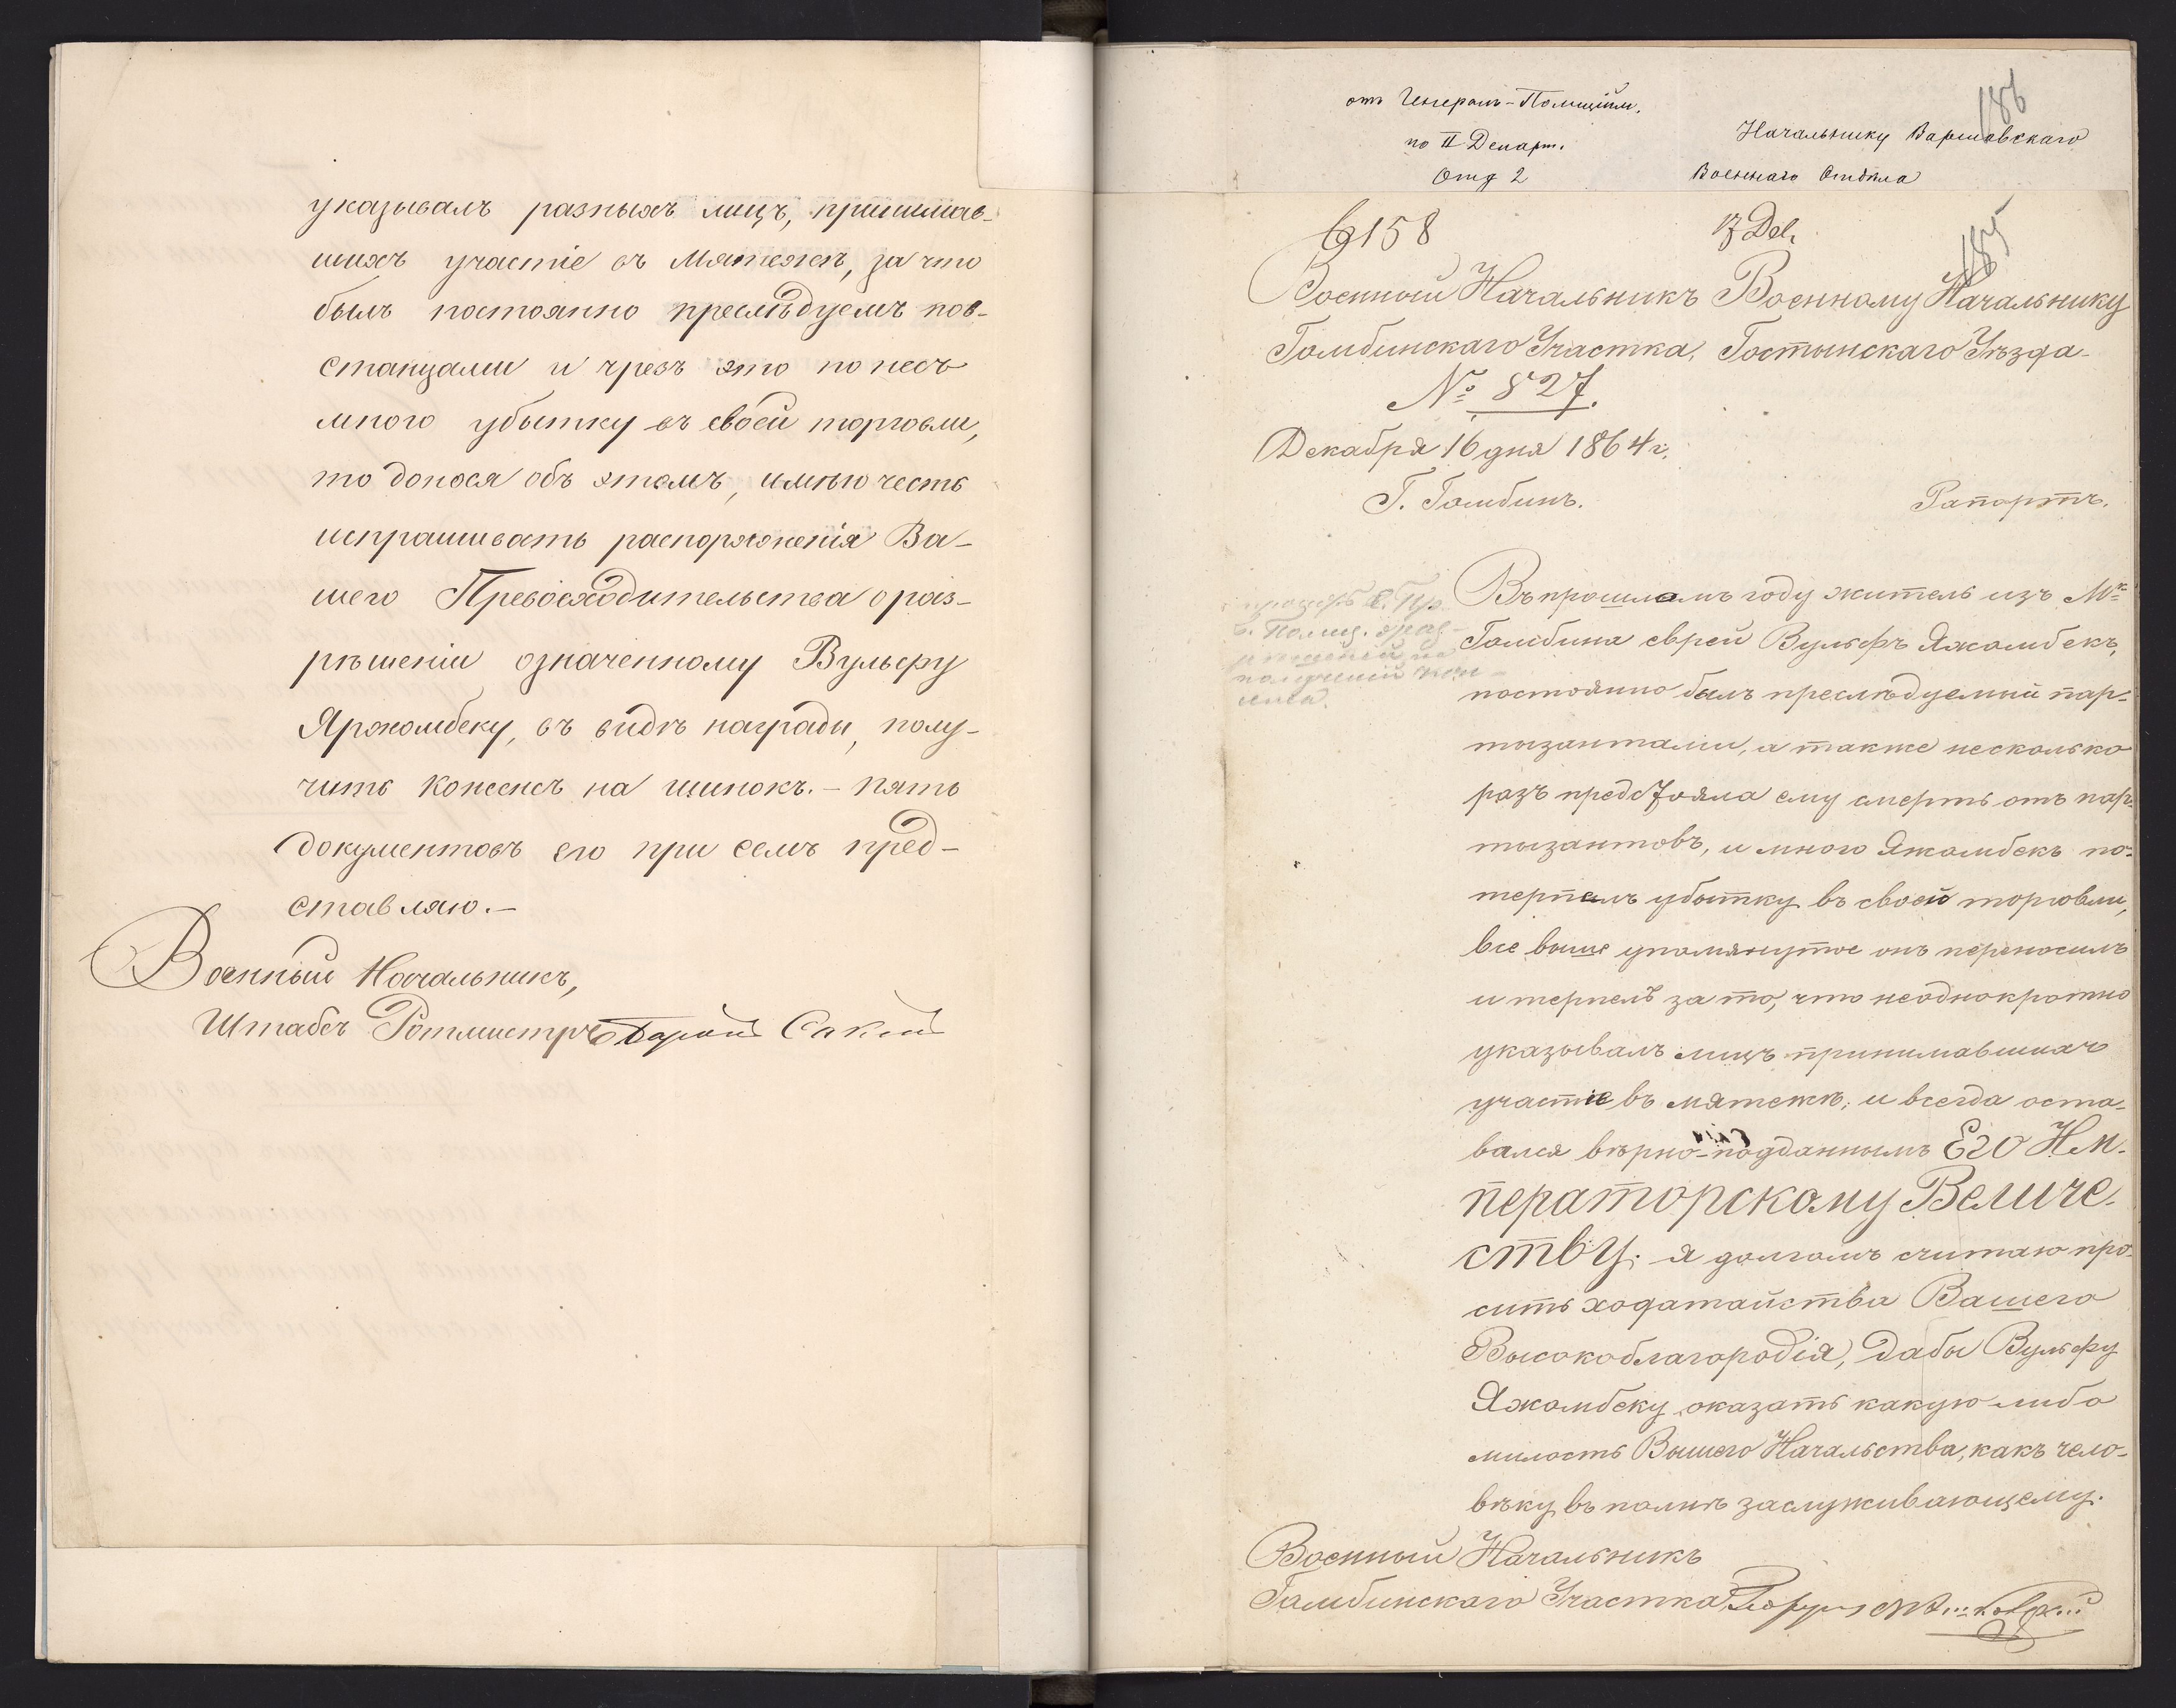 указывалъ разныхъ лицъ, принимав-
шихъ участіе въ мятежѣ, за что
былъ постоянно преслѣдуемъ пов-
станцами и чрезъ это понесъ
много убытку въ своей торговли,
то донося объ этомъ, имѣю честь
испрашивать распоряженія Ва-
шего Превосходительства о раз-
рѣшеніи означенному Вульфу
Яржомбеку, въ видѣ награды, полу-
чить консенсъ на шинокъ. – Пять
документовъ его при семъ пред-
ставляю. –
Военный Начальникъ,
Штабсъ Ротмистръ Баронъ Сакенъ
186
отъ Генералъ-Полиційм.
по II Департ.
Отд 2
Начальнику Варшавскаго
Военнаго Отдѣла
6158
185
Военный Начальникъ
Гомбинскаго Участка.
№ 827.
Декабря 16 дня 1864 г.
Г. Гомбинъ.
Военному Начальнику
Гостынскаго Уѣзда
Рапортъ.
Въ прошломъ году житель изъ М.
Гомбина еврей Вульфъ Яжомбекъ,
постоянно былъ преслѣдуемый пар-
тызантами, а также несколько
разъ предстояла ему смерть отъ пар-
тызантовъ, и много Яжомбекъ по-
терпелъ убытку въ своей торговли,
все выше упомянутое онъ переносилъ
и терпелъ за то, что неоднократно
указывалъ лицъ принимавшихъ
участіе въ мятежѣ, и всегда оста-
вался вѣрно-подданнымъ Его Им-
ператорскому Величе-
ству; я долгомъ считаю про-
сить ходатайства Вашего
Высокоблагородія, дабы Вульфу
Яжомбеку оказать какую либо
милость Вышего Начальства, какъ чело-
вѣку въ полнѣ заслуживающему.
Военный Начальникъ
Гомбинскаго Участка,